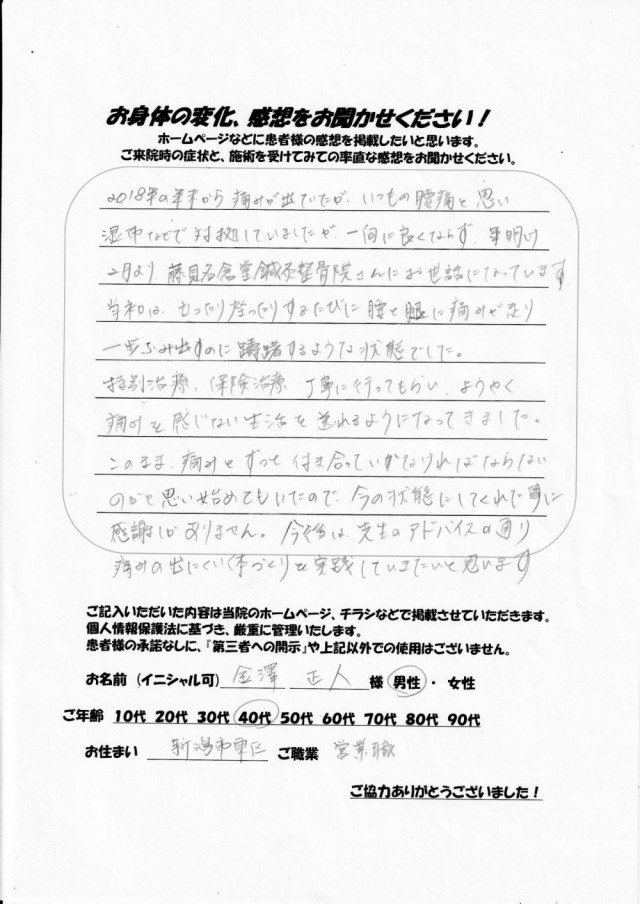 お身体の変化、感想をお聞かせください！
ホームページなどに患者様の感想を掲載したいと思います。
ご来院時の症状と、施術を受けてみての率直な感想をお聞かせください。
2018年の年末から痛みが出ていたが、いつもの腰痛と思い
湿布などで対処していましたが、一向に良くならず、年明け
2月より、藤見名倉堂鍼灸整骨院さんにお世話になっています
当初は、立ったり座ったりするたびに腰と腿に痛みが走り
一歩ふみ出すのに躊躇するような状態でした。
特別治療、保険治療 丁寧に行ってもらい、ようやく
痛みを感じない生活を送れるようになってきました。
このまま、痛みとずっと付き合っていかなければならない
のかと思い始めてもいたので、今の状態にしてくれた事に
感謝しかありません。今後は先生のアドバイスの通り
痛みの出にくい体づくりを実践していきたいと思います
ご記入いただいた内容は当院のホームページ、チラシなどで掲載させていただきます。
個人情報保護法に基づき、厳重に管理いたします。
患者様の承諾なしに、「第三者への開示」や上記以外での使用はございません。
お名前（イニシャル可） 金澤 正人 様 男性・ 女性
ご年齢 10代 20代 30代 40代 50代 60代 70代 80代 90代
お住まい 新潟市東区 ご職業 営業職
ご協力ありがとうございました！